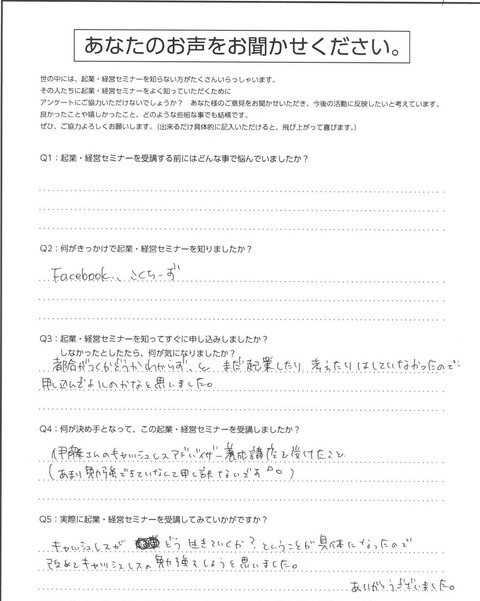 あなたのお声をお聞かせください。
世の中には、起業・経営セミナーを知らない方がたくさんいらっしゃいます。
その人たちに起業・経営セミナーをよく知っていただくために
アンケートにご協力いただけないでしょうか? あなた様のご意見をお聞かせいただき、今後の活動に反映したいと考えています。
良かったことや嬉しかったこと、どのような些細な事でも結構です。
ぜひ、ご協力よろしくお願いします。(出来るだけ具体的に記入いただけると、飛び上がって喜びます。)
Q1:起業・経営セミナーを受講する前にはどんな事で悩んでいましたか?
Q2:何がきっかけで起業・経営セミナーを知りましたか?
Facebook、こくちーず
Q3:起業・経営セミナーを知ってすぐに申し込みしましたか?
しなかったとしたら、何が気になりましたか?
都合がつくかどうかわからず、と まだ起業したり 考えたりはしていなかったので
申し込んでよいのかなと思いました。
Q4:何が決め手となって、この起業・経営セミナーを受講しましたか?
伊藤さんのキャッシュレスアドバイザー養成講座を受けたこと
(あまり勉強できていなくて申し訳ないです。。)
Q5:実際に起業・経営セミナーを受講してみていかがですか?
キャッシュレスが どう生きていくか?ということが具体になったので
改めてキャッシュレスの勉強をしようと思いました。
ありがとうございました。